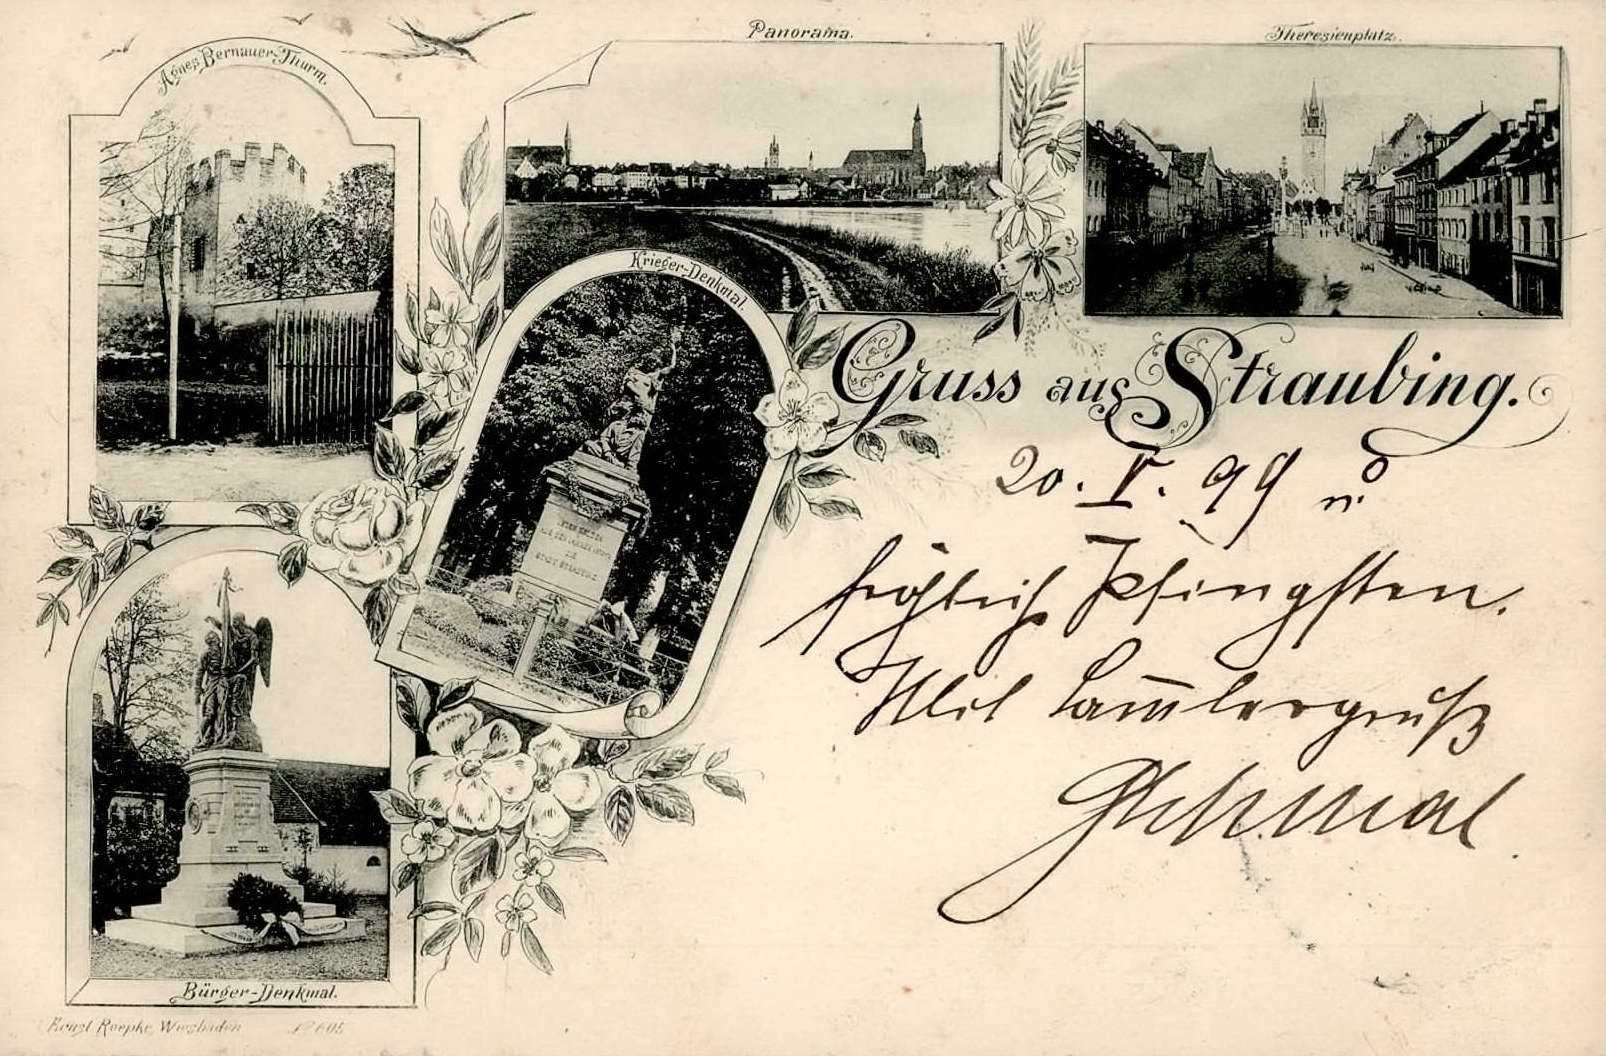 Agnes Bernauer-Thurm.
Panorama.
Theresienplatz.
Krieger-Denkmal.
Gruss aus Straubing.
20. V. 99
fröhlich Pfingsten.
Mit Sammlergruß
Bürger-Denkmal.
Ernst Roepke, Wiesbaden